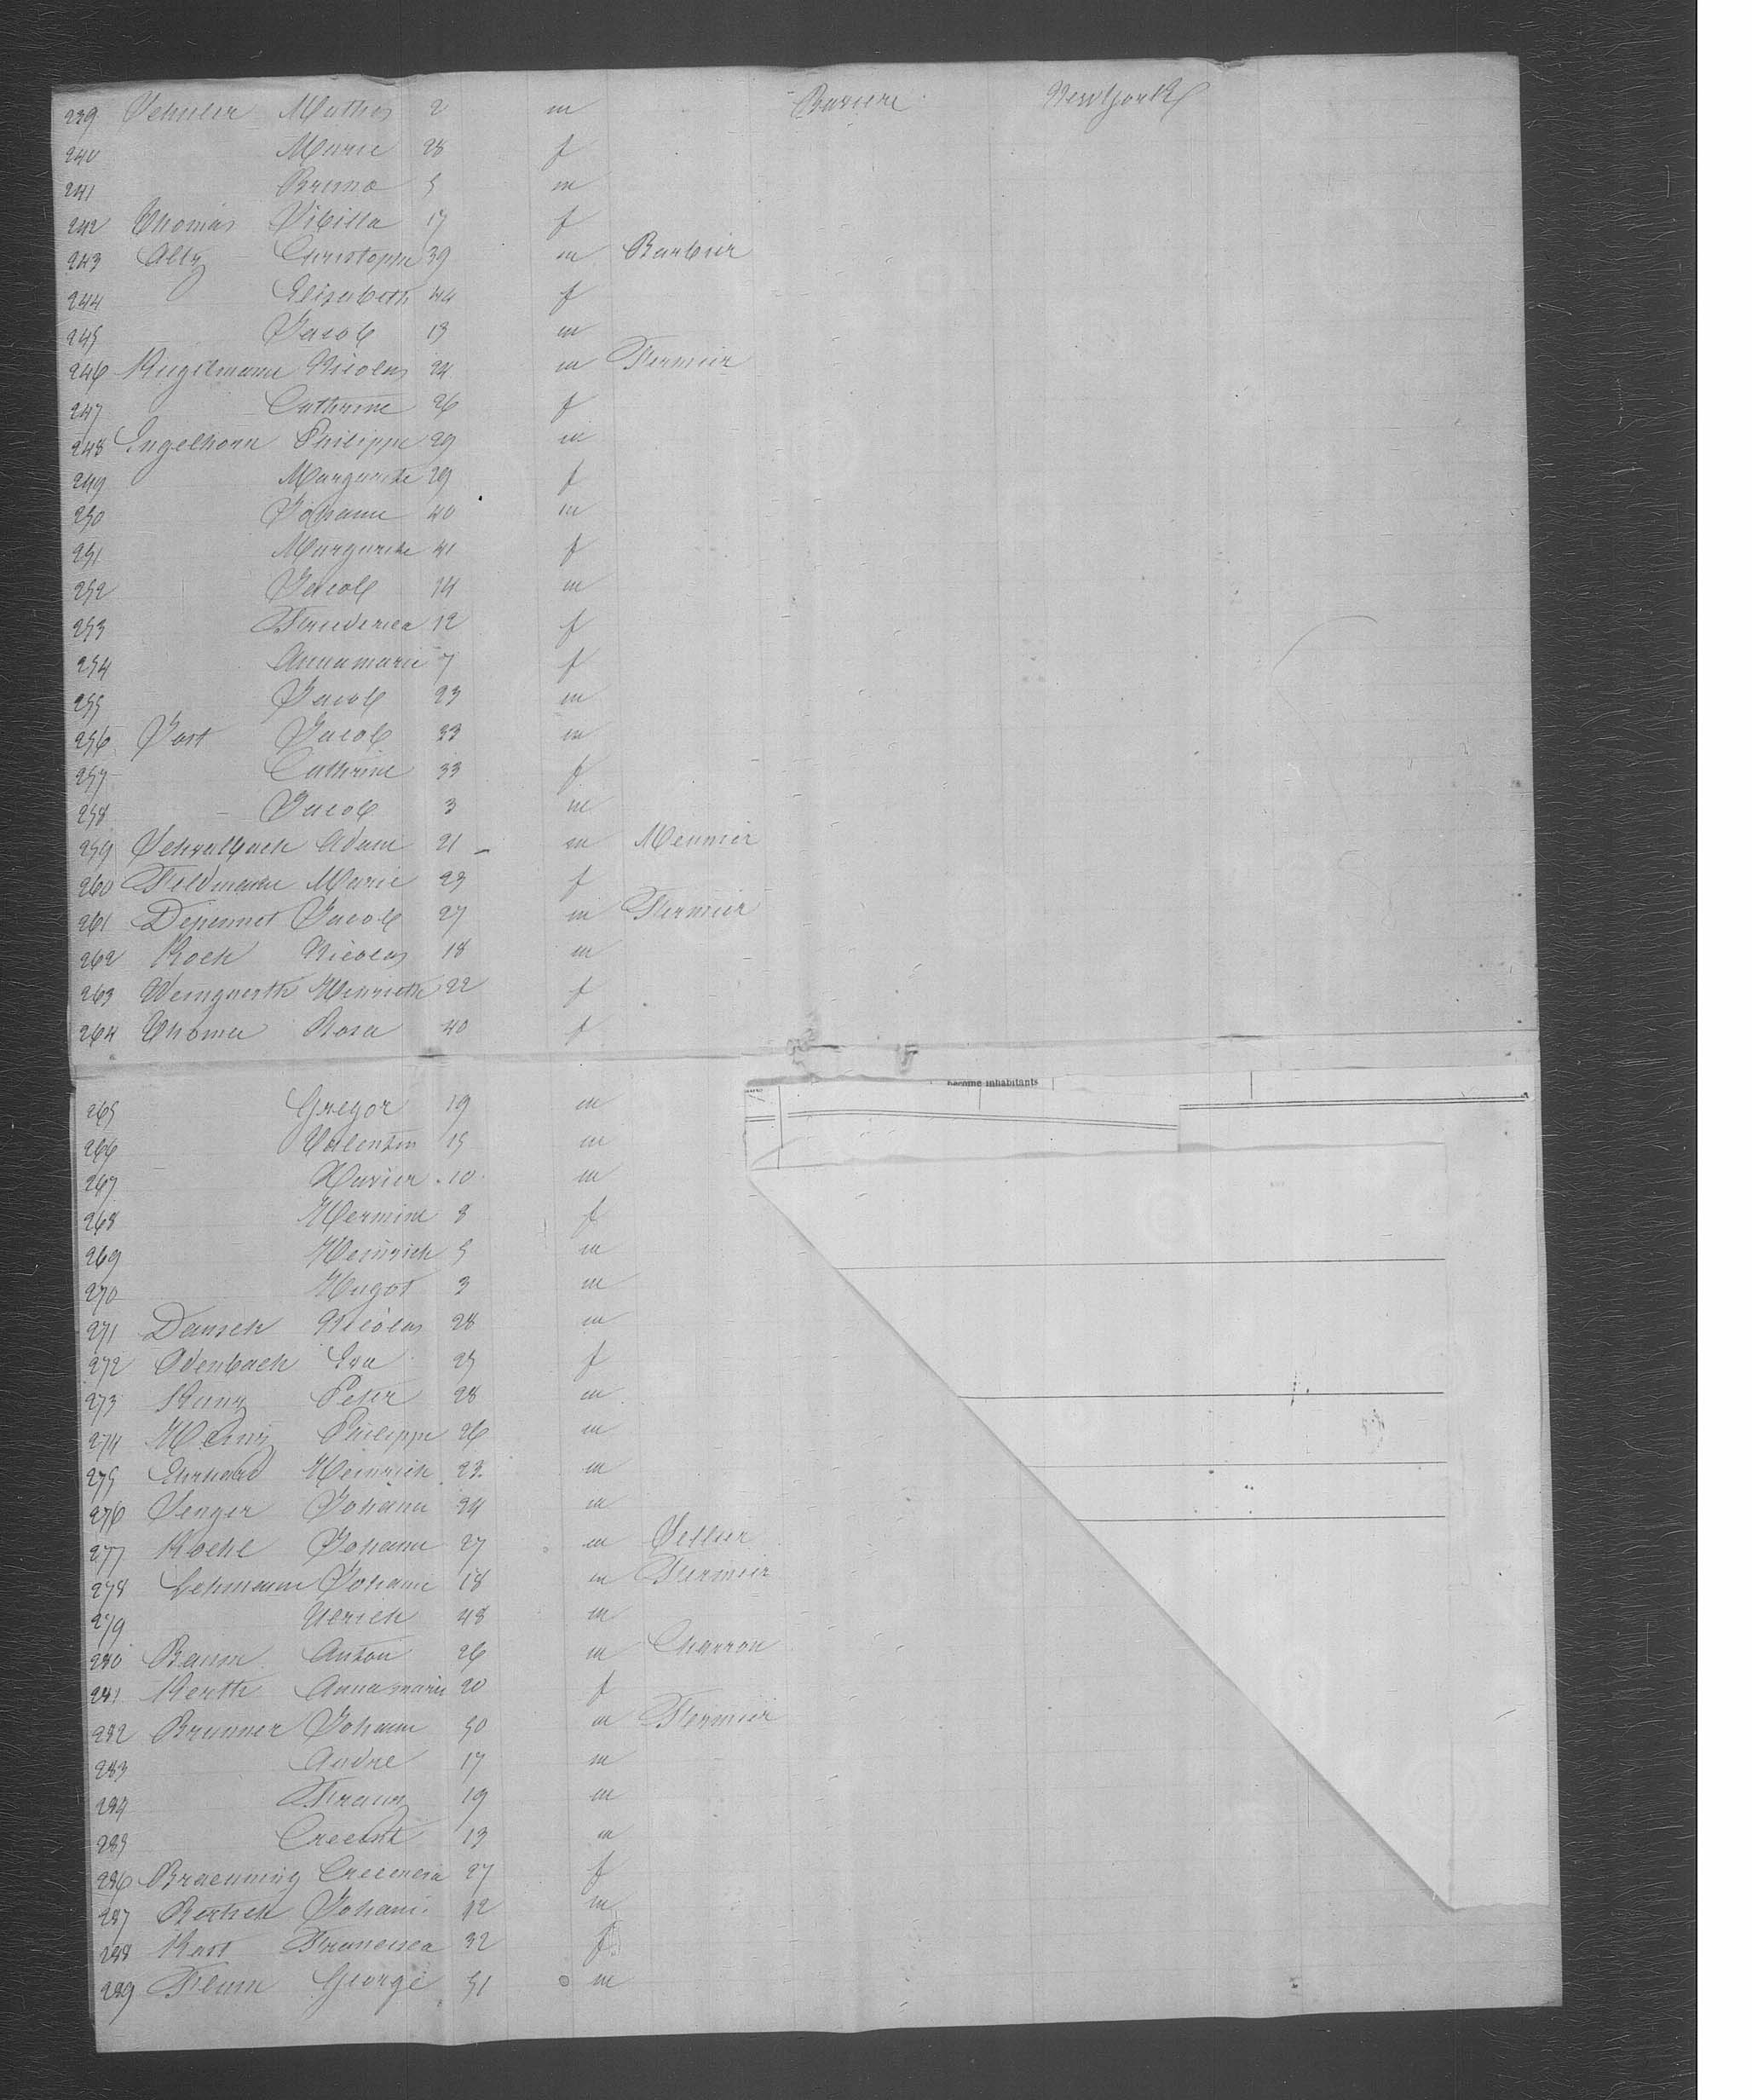 239 Schuler Mathes 2 m Baviere New York
240 Marie 28 f
241 Bruno 5 m
242 Thomas Sibilla 17 f
243 Altz Christophe 39 m Barbier
244 Elisabeth 44 f
245 Jacob 13 m
246 Kugelmann Nicolas 24 m Fermier
247 Cathrine 26 f
248 Engelhorn Philippe 29 m
249 Margarethe 29 f
250 Johann 40 m
251 Margarethe 41 f
252 Jacob 14 m
253 Friederica 12 f
254 Annamarie 7 f
255 Jacob 23 m
256 Jost Jacob 33 m
257 Cathrine 33 f
258 Jacob 3 m
259 Schwalbach Adam 21 m Meunier
260 Feldmann Marie 23 f
261 Jacob 27 m Fermier
262 Koch Nicolas 18 m
263 Weingerth Henrieth 22 f
264 Thomee Rosa 40 f
become inhabitants
265 Gregor 19 m
266 Valentin 15 m
267 Xavier 10 m
268 Hermine 8 f
269 Heinrich 5 m
270 Hugot 3 m
271 Dausch Nicolas 28 m
272 Odenbach Eva 25 f
273 Kunz Peter 28 m
274 Philippe 26 m
275 Ehrhard Heinrich 23 m
276 Senger Johann 24 m
277 Koehl Johann 27 m Sellier
278 Lehmann Johann 18 m Fermier
279 Ulrich 48 m
280 Baum Anton 26 m Charron
281 Kerth Annamarie 20 f
282 Brunner Johann 50 m Fermier
283 Andre 17 m
284 Franz 19 m
285 13 m
286 Braeuning 27 f
287 Bertsch Johann 12 m
288 Kast Francisca 32 f
289 George 51 m